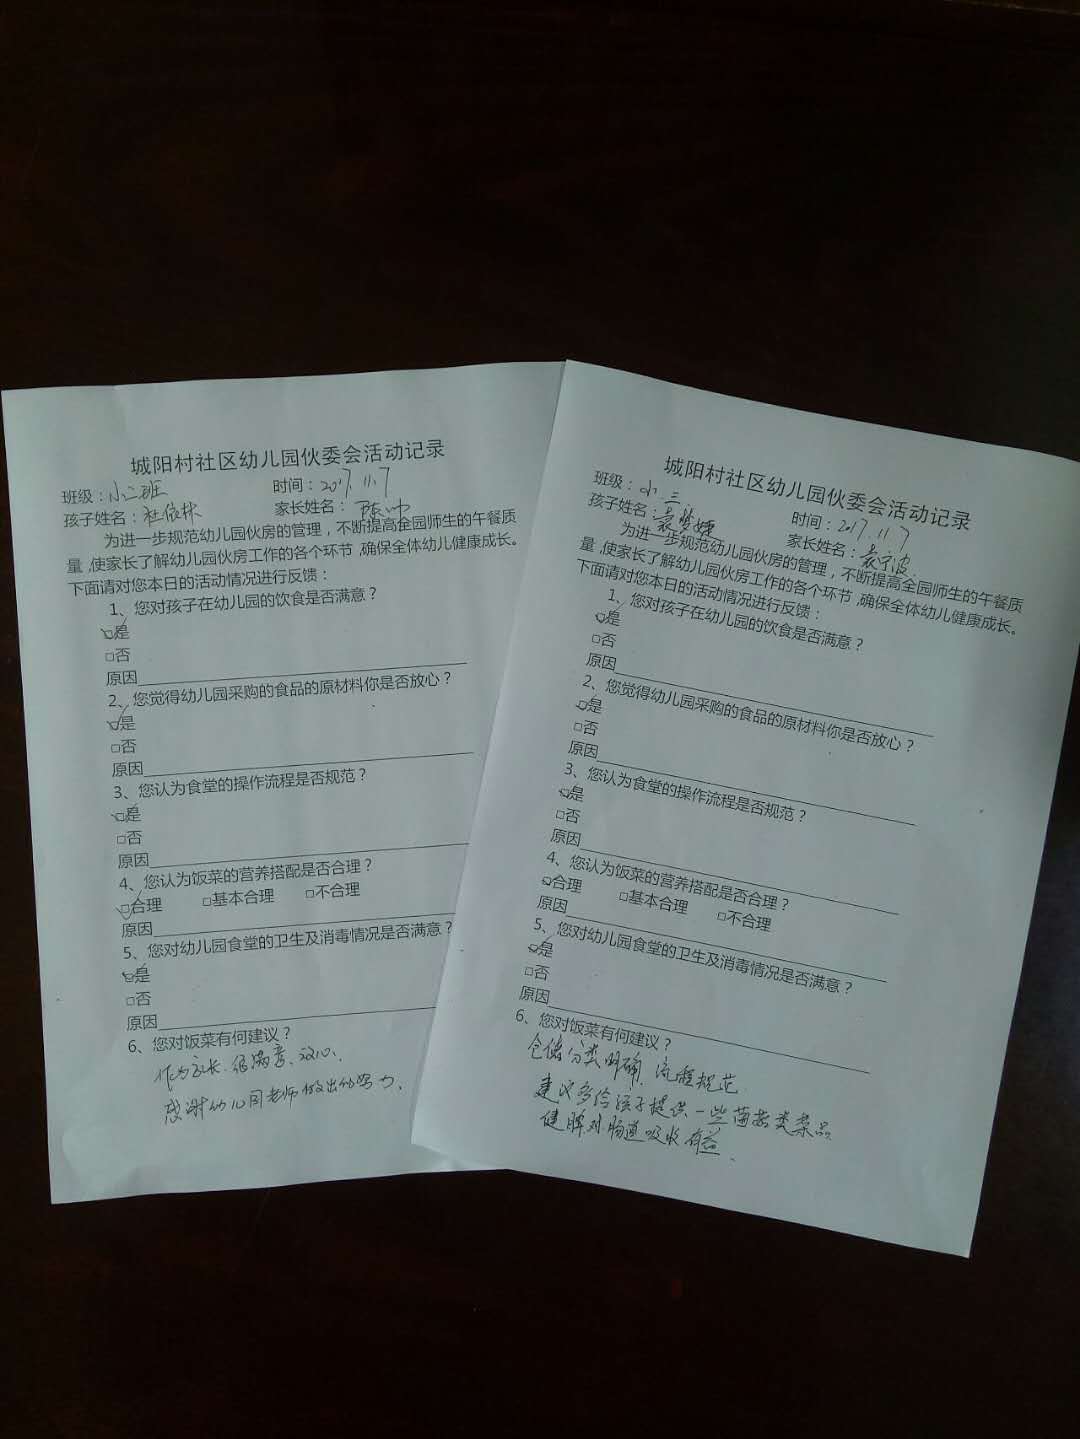 城阳村社区幼儿园伙委会活动记录
班级：小二班 时间：2017.11.7
孩子姓名：杜依林 家长姓名：
为进一步规范幼儿园伙房的管理，不断提高全园师生的午餐质
量，使家长了解幼儿园伙房工作的各个环节，确保全体幼儿健康成长。
下面请对您本日的活动情况进行反馈：
1、您对孩子在幼儿园的饮食是否满意？
□是
□否
原因
2、您觉得幼儿园采购的食品的原材料你是否放心？
□是
□否
原因
3、您认为食堂的操作流程是否规范？
□是
□否
原因
4、您认为饭菜的营养搭配是否合理？
□合理 □基本合理 □不合理
原因
5、您对幼儿园食堂的卫生及消毒情况是否满意？
□是
□否
原因
6、您对饭菜有何建议？
作为家长.很满意、放心、
感谢幼儿园老师做出的努力.
城阳村社区幼儿园伙委会活动记录
班级：小三 时间：2017.11.7
孩子姓名：袁梦婕 家长姓名：袁宁波
为进一步规范幼儿园伙房的管理，不断提高全园师生的午餐质
量，使家长了解幼儿园伙房工作的各个环节，确保全体幼儿健康成长。
下面请对您本日的活动情况进行反馈：
1、您对孩子在幼儿园的饮食是否满意？
□是
□否
原因
2、您觉得幼儿园采购的食品的原材料你是否放心？
□是
□否
原因
3、您认为食堂的操作流程是否规范？
□是
□否
原因
4、您认为饭菜的营养搭配是否合理？
□合理 □基本合理 □不合理
原因
5、您对幼儿园食堂的卫生及消毒情况是否满意？
□是
□否
原因
6、您对饭菜有何建议？
仓储分类明确、流程规范
建议多给孩子提供一些菌菇类菜品
健脾对肠道吸收有益、